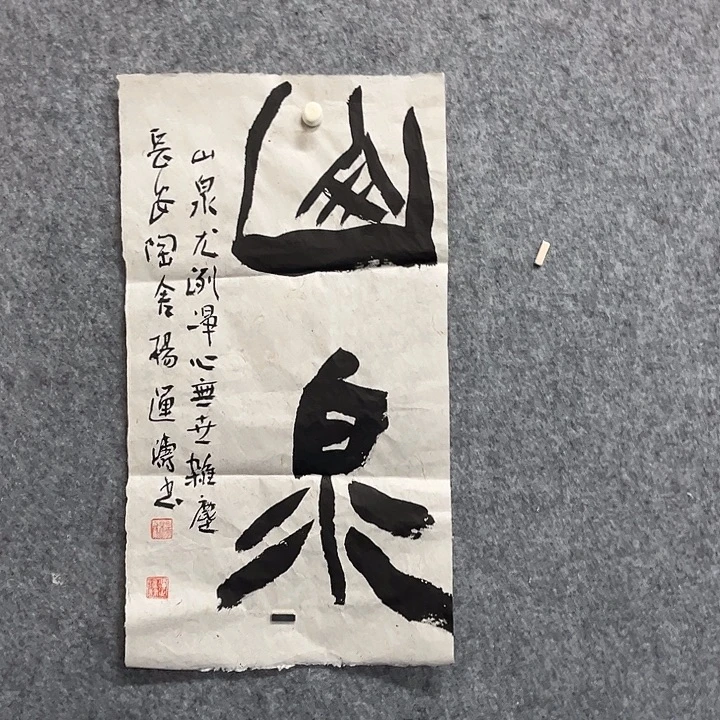 山泉
山泉尤心無世雜塵
長安陶舍楊運濤书